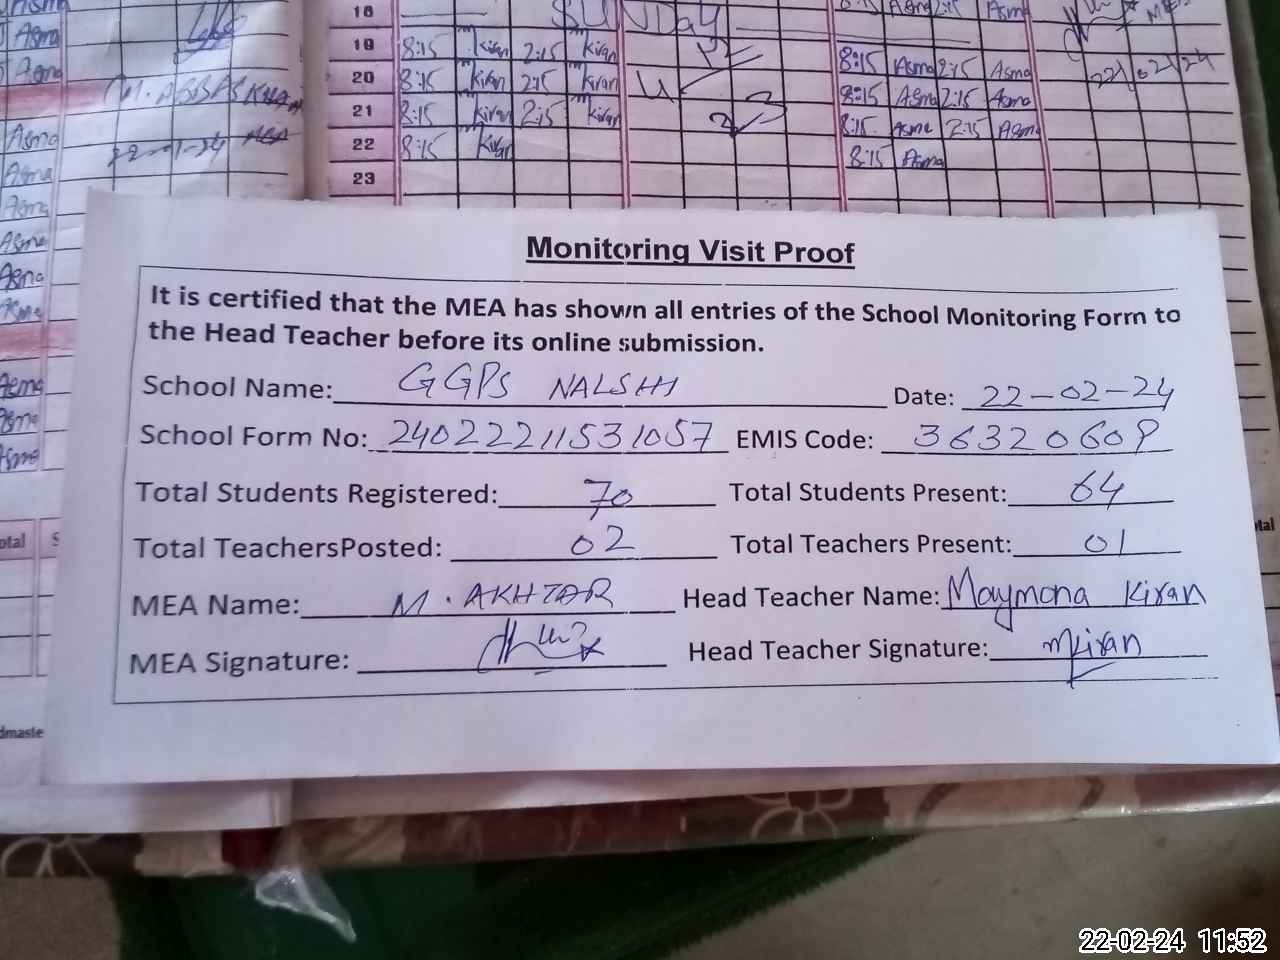 18 SUNDAY
19 8:15 Kiran 2:15 Kiran 8:15 Asma 2:15 Asma
20 8:15 Kiran 2:15 Kiran 8:15 Asma 2:15 Asma
21 8:15 Kiran 2:15 Kiran 8:15 Asma 2:15 Asma
22 8:15 Kiran 8:15 Asma
23
22/02/24
Asma
Asma
Asma
Asma
Asma
Asma
Asma
Asma
Asma
Monitoring Visit Proof
It is certified that the MEA has shown all entries of the School Monitoring Form to
the Head Teacher before its online submission.
School Name: GGPS NALSHI Date: 22-02-24
School Form No: 24022211531057 EMIS Code: 36320609
Total Students Registered: 70 Total Students Present: 64
Total TeachersPosted: 02 Total Teachers Present: 01
MEA Name: M. AKHTAR Head Teacher Name: Maymona Kiran
MEA Signature: Head Teacher Signature: mKiran
otal
tal
dmaste
22-02-24 11:52